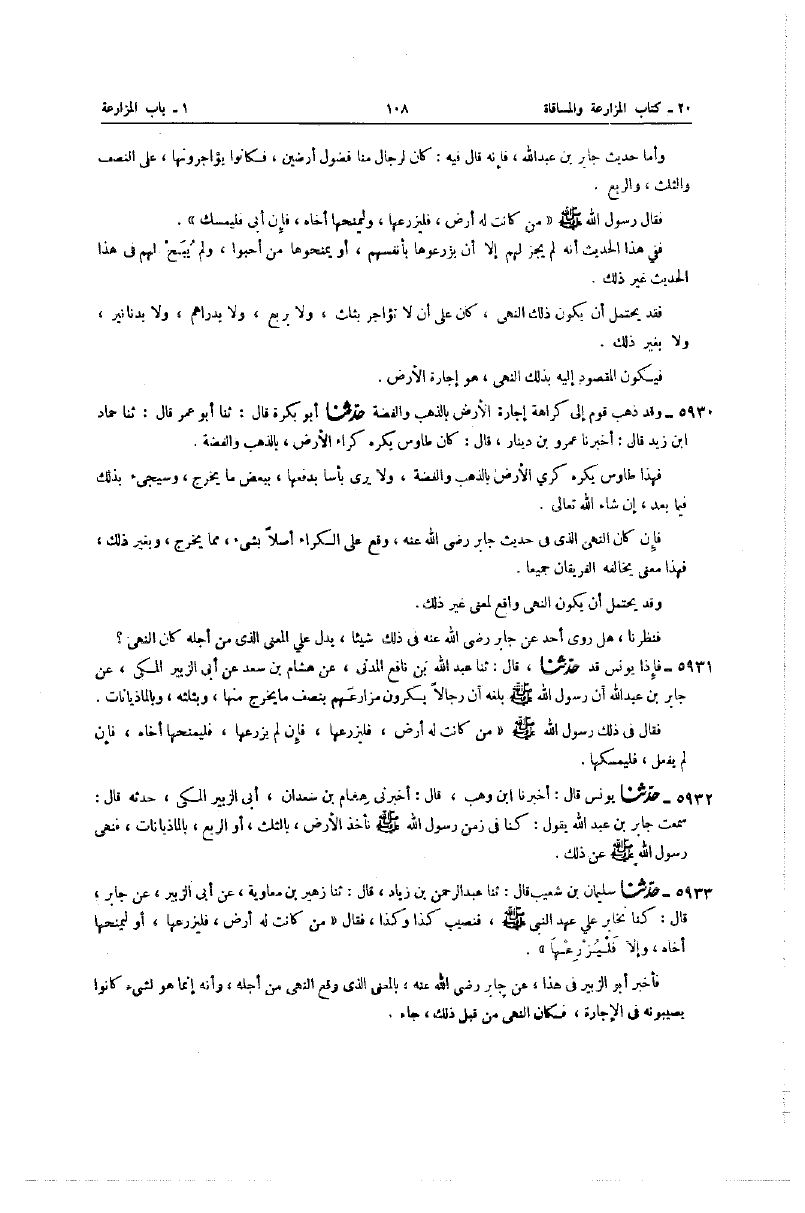 ٢٠ ـ كتاب المزارعة والمساقاة ١٠٨ ١ ـ باب المزارعة
وأما حديث جابر بن عبدالله ، فإنه قال فيه : كان لرجال منا فضول أرضين ، فكانوا يؤاجرونها ، على النصف
والثلث ، والربع .
فقال رسول الله ﷺ « من كانت له أرض ، فليزرعها ، وليمنحها أخاه ، فإن أبى فليمسك » .
ففي هذا الحديث أنه لم يجز لهم إلا أن يزرعوها بأنفسهم ، أو يمنحوها من أحبوا ، ولم يُبِحْ لهم فى هذا
الحديث غير ذلك .
فقد يحتمل أن يكون ذلك النهى ، كان على أن لا تؤاجر بثلث ، ولا بربع ، ولا بدراهم ، ولا بدنانير ،
ولا بغير ذلك .
فيكون المقصود إليه بذلك النهى ، هو إجارة الأرض .
٥٩٣٠ ـ وقد ذهب قوم إلى كراهة إجارة الأرض بالذهب والفضة حدّثنا أبو بكرة قال : ثنا أبو عمر قال : ثنا حماد
ابن زيد قال : أخبرنا عمرو بن دينار ، قال : كان طاوس يكره كراء الأرض ، بالذهب والفضة .
فهذا طاوس يكره كري الأرض بالذهب والفضة ، ولا يرى بأسا بدفعها ، ببعض ما يخرج ، وسيجىء بذلك
فيما بعد ، إن شاء الله تعالى .
فإن كان النهى الذى فى حديث جابر رضى الله عنه ، وقع على الكراء أصلاً بشىء ، مما يخرج ، وبغير ذلك ،
فهذا معنى يخالفه الفريقان جميعا .
وقد يحتمل أن يكون النهى واقع لمعنى غير ذلك .
فنظرنا ، هل روى أحد عن جابر رضى الله عنه فى ذلك شيئا ، يدل علي المعنى الذى من أجله كان النهى ؟
٥٩٣١ ـ فإذا يونس قد حدّثنا ، قال : ثنا عبد الله بن نافع المدنى ، عن هشام بن سعد عن أبى الزبير المكى ، عن
جابر بن عبدالله أن رسول الله ﷺ بلغه أن رجالاً يكرون مزارعهم بنصف مايخرج منها ، وبثلثه ، وبالماذيانات .
فقال فى ذلك رسول الله ﷺ « من كانت له أرض ، فليزرعها ، فإن لم يزرعها ، فليمنحها أخاه ، فإن
لم يفعل ، فليمسكها .
٥٩٣٢ ـ حدّثنا يونس قال : أخبرنا ابن وهب ، قال : أخبرنى هشام بن سعدان ، أبى الزبير المكى ، حدثه قال :
سمعت جابر بن عبد الله يقول : كنا فى زمن رسول الله ﷺ نأخذ الأرض ، بالثلث ، أو الربع ، بالماذيانات ، فنهى
رسول الله ﷺ عن ذلك .
٥٩٣٣ ـ حدّثنا سليمان بن شعيب قال : ثنا عبدالرحمن بن زياد ، قال : ثنا زهير بن معاوية ، عن أبى الزبير ، عن جابر ،
قال : كنا نخابر علي عهد النبي ﷺ ، فنصيب كذا وكذا ، فقال « من كانت له أرض ، فليزرعها ، أو ليمنحها
أخاه ، وإلا فَلْيُزْرِعْهَا » .
فأخبر أبو الزبير فى هذا ، عن جابر رضى الله عنه ، بالمعنى الذى وقع النهى من أجله ، وأنه إنما هو لشىء كانوا
يصيبونه فى الإجارة ، فكان النهى من قبل ذلك ، جاء .